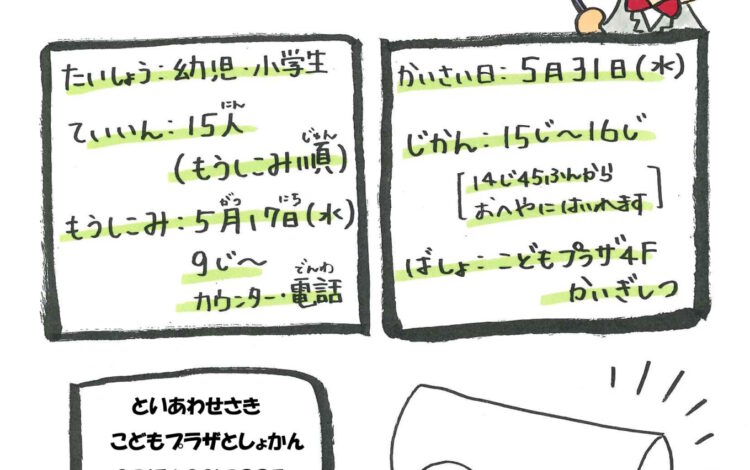 たいしょう：幼児・小学生
ていいん：15人
にん
(もうしこみ順)
じゅん
もうしこみ：5月17日(水)
がつ にち
9じ～
カウンター・電話
でんわ
かいさい日：5月31日(水)
じかん：15じ～16じ
[14じ45ふんから
おへやにはいれます]
ばしょ：こどもプラザ4F
かいぎしつ
といあわせさき
こどもプラザとしょかん